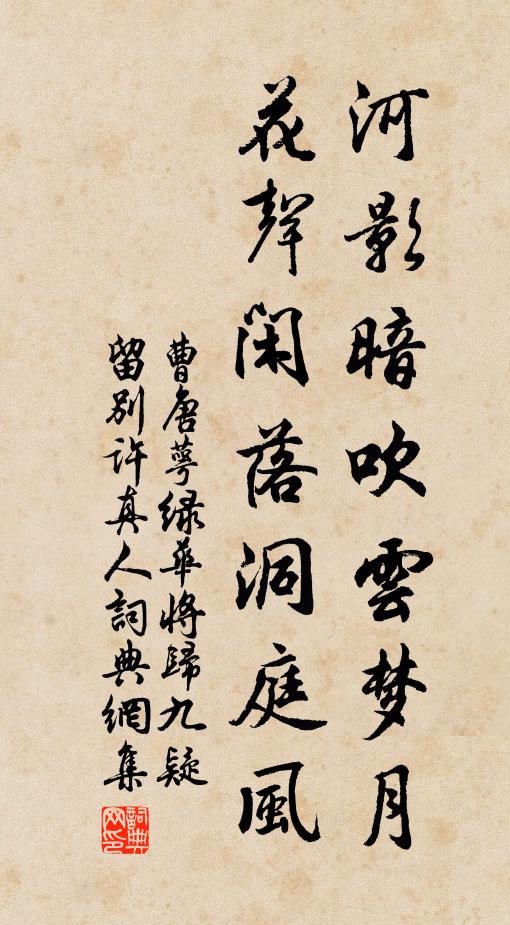 河影暗吹雲梦月
花聲閑落洞庭風
曹唐萼緑華将歸九疑
留别许真人詞典網集
詞典网印